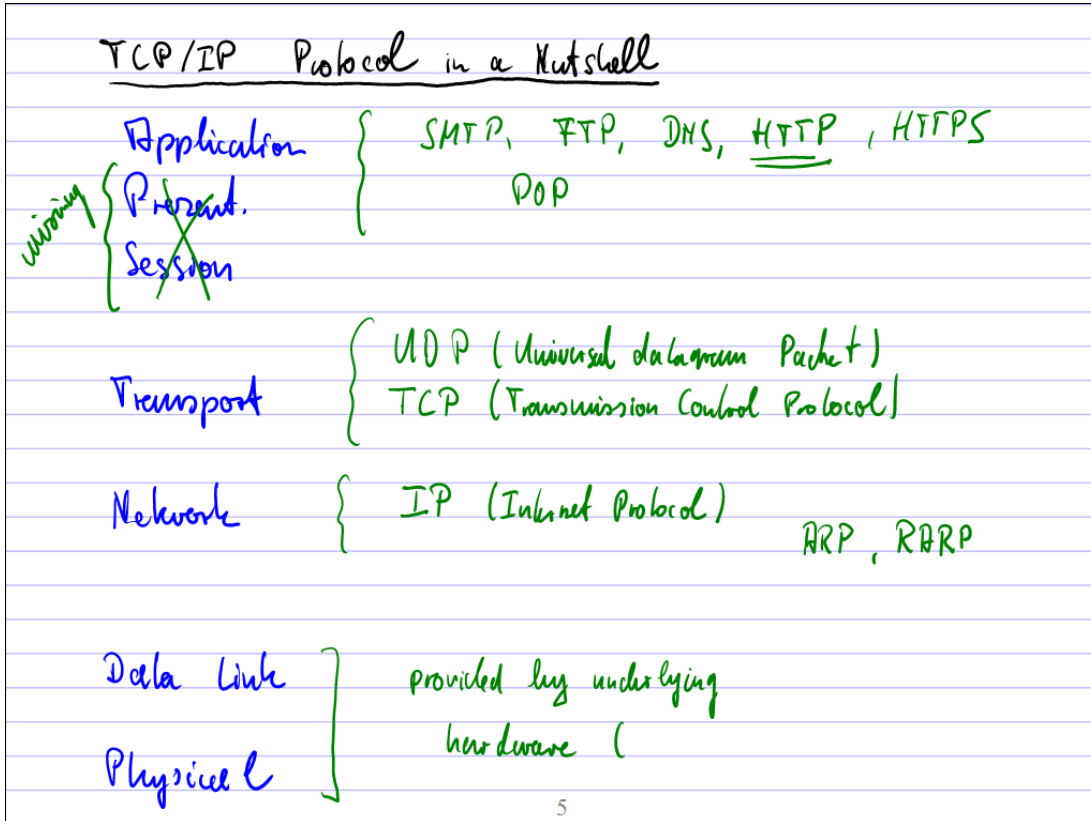 TCP/IP Protocol in a Nutshell
Application { SMTP, FTP, DNS, HTTP, HTTPS
POP
missing { Prezent.
Session
Transport { UDP (Universal datagram Packet)
TCP (Transmission Control Protocol)
Network { IP (Internet Protocol)
ARP, RARP
Data Link ] provided by underlying
hardware (
Physical
5